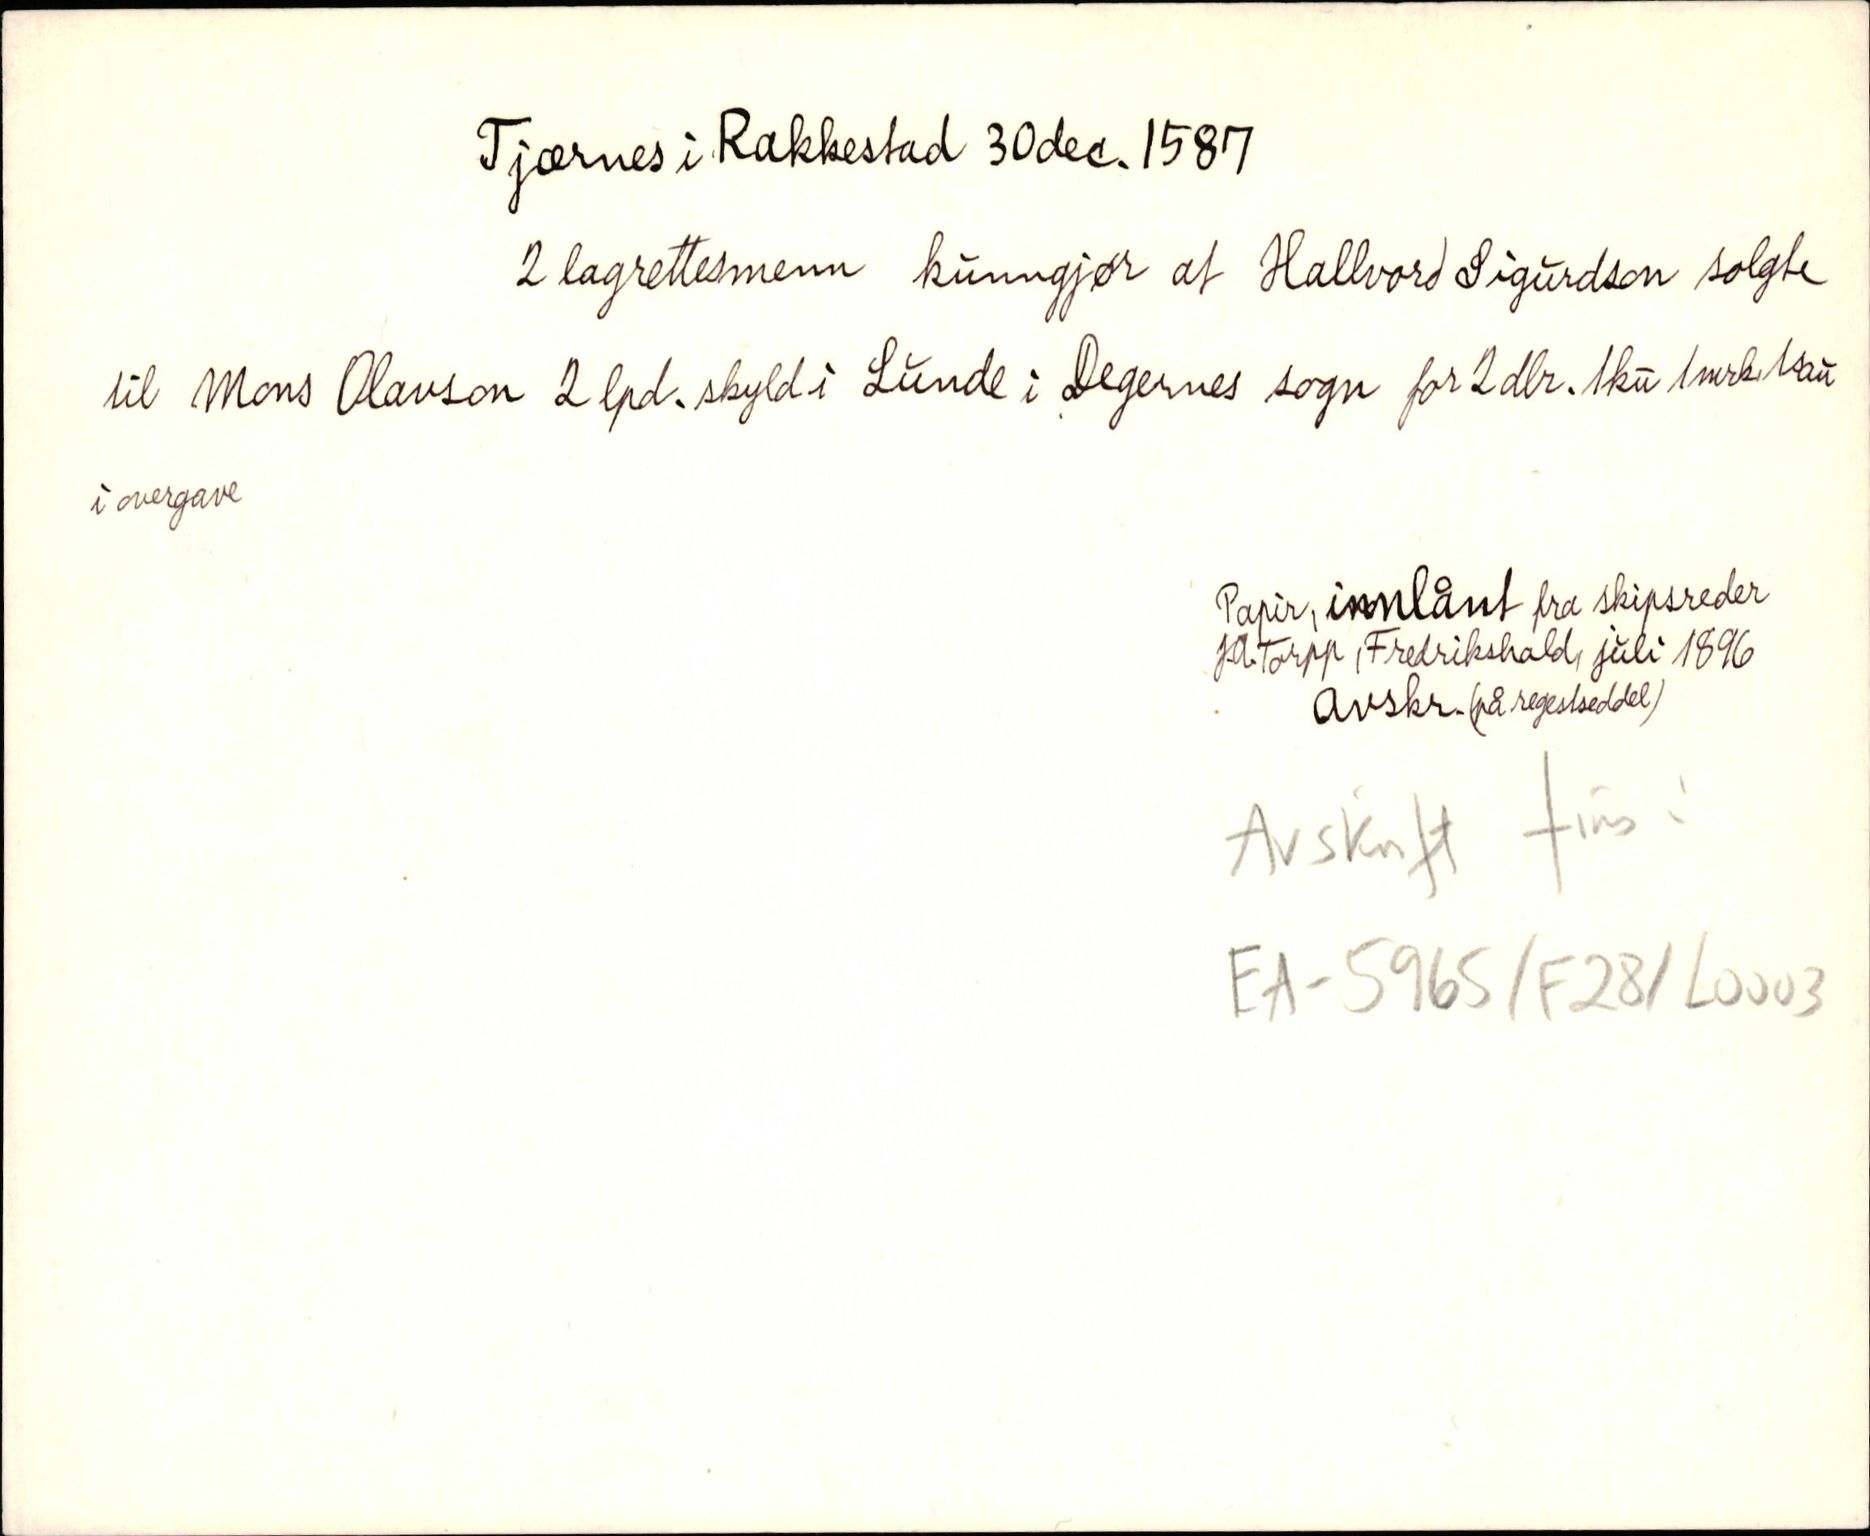 Tjærnes i Rakkestad 30 dec. 1587
2 lagrettesmenn kunngjør at Hallvord Sigurdson solgte
til Mons Olavson 2 lpd. skyld i Lunde i Degernes sogn for 2 dlr. 1 ku 1 mrk. 1 sau
i overgave
Papir, innlånt fra skipsreder
J.A. Torpp, Fredrikshald, juli 1896
Avskr. (på regestseddel)
Avskrift fins i
EA-5965/F28/L0003